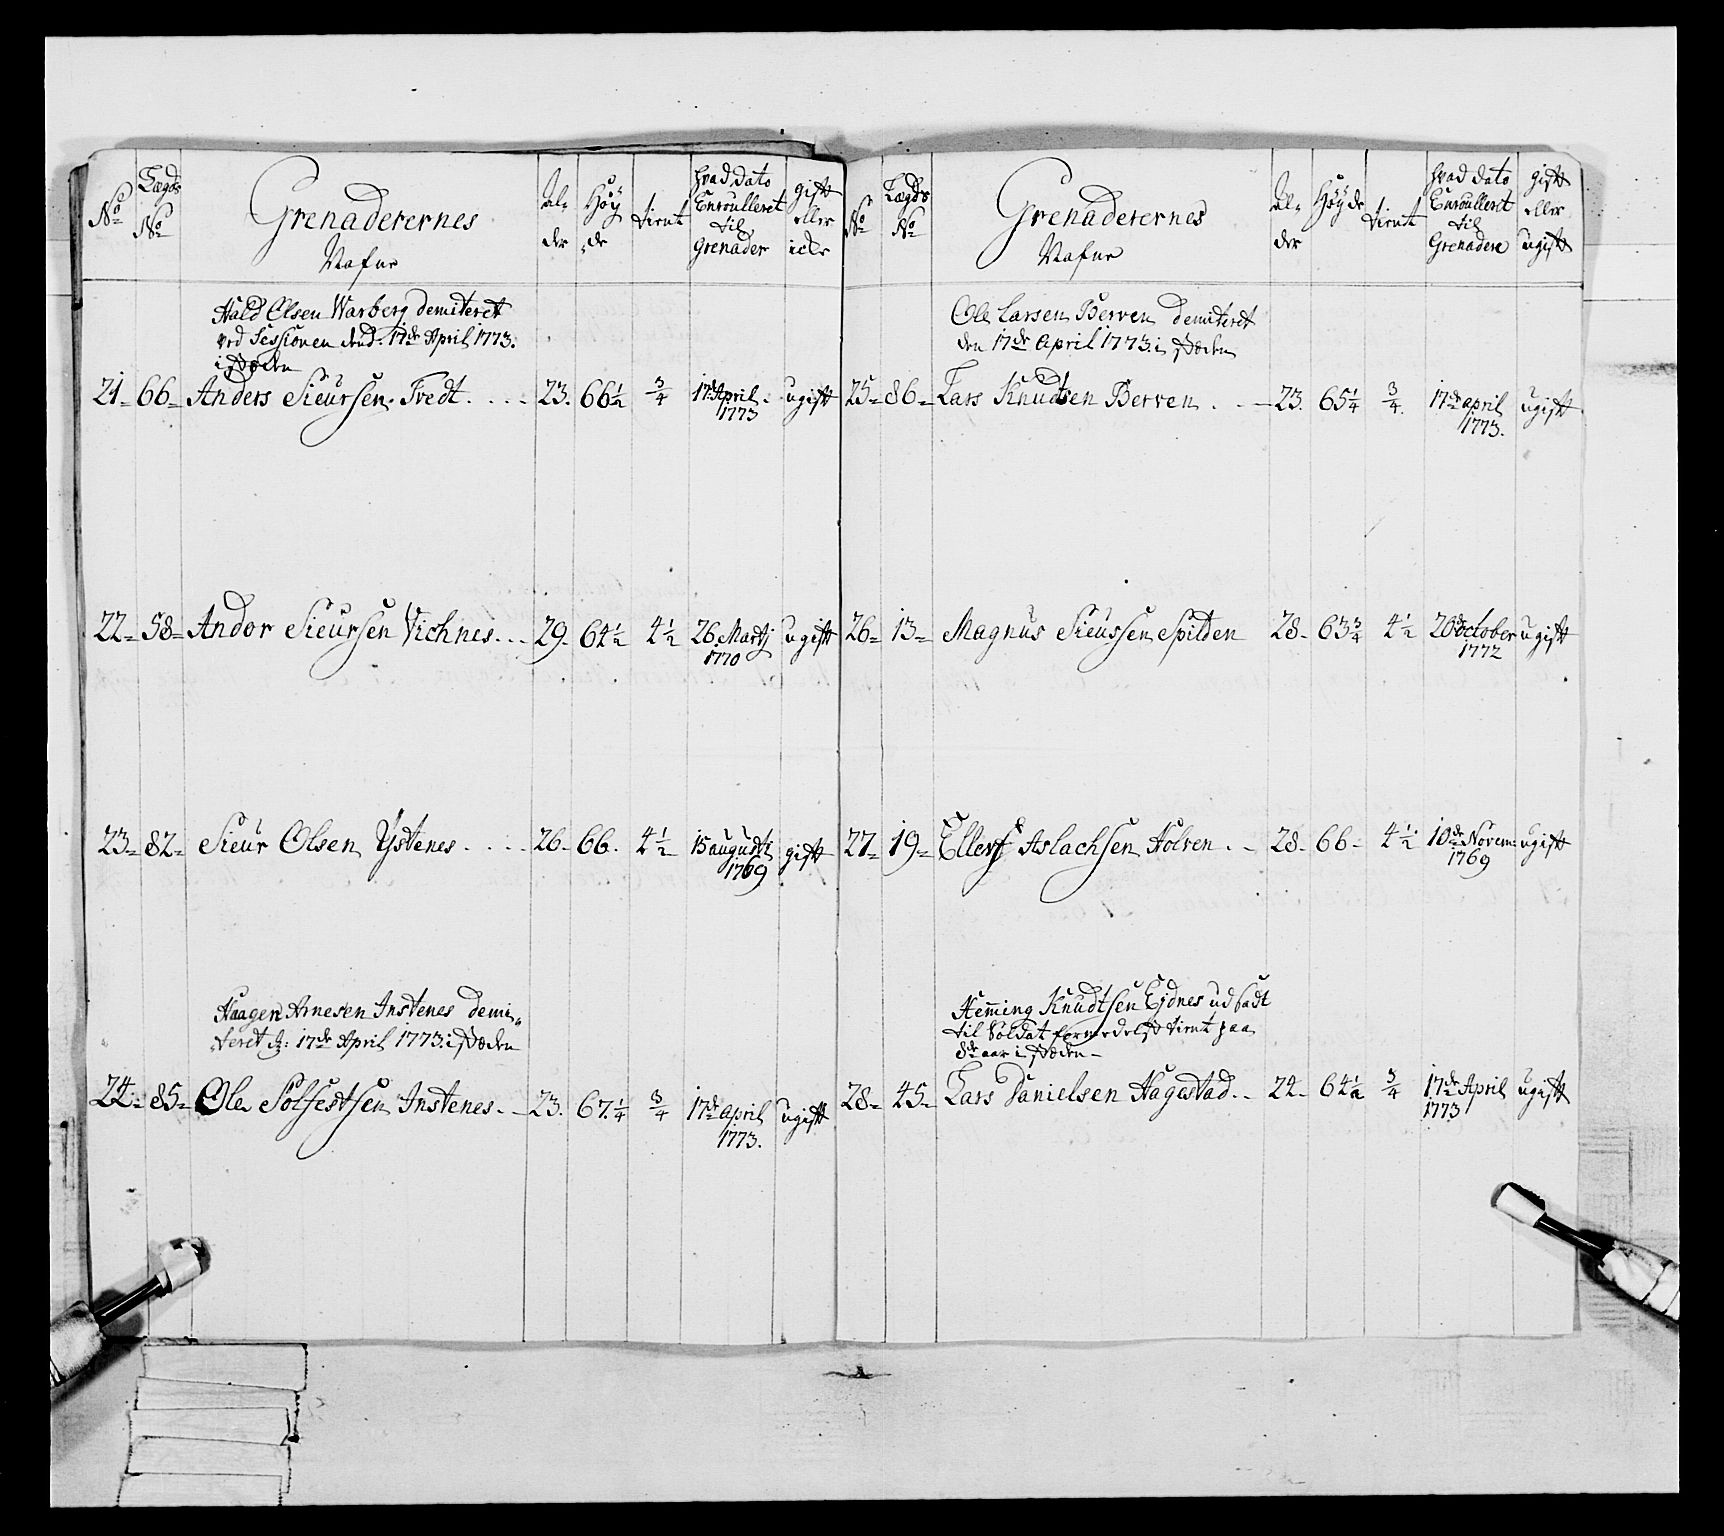 No
Lægds No
Grenaderernes Nafne
Al-der
Høy-de
tient
hvad dato Enroulleret til Grenader
gift eller icke
Hald Olsen Warberg demiteret
ved Sessionen dend: 17de April 1773.
i støeden
21- 66- Anders Sieursen Tvedt. . . - 23. 66½ ¾ 17de April 1773 ugift
22- 58- Andor Sieursen Vichnes. . . 29. 64½ 4½ 26 Martj 1770 ugift
23- 82- Sieur Olsen Ystenes. . . . 26- 66. 4½ 15 augusti 1769 gift
Haagen Arnesen Instenes demi-
teret d: 17de April 1773. i støeden
24- 85- Ole Solfestsen Instenes. - 23. 67.¼ ¾ 17de april 1773. ugift
No
Lægds No
Grenaderernes Nafne
Al-der
Høyde
tient
hvad dato Enroulleret til Grenadere
gift eller ugift
Ole Larsen Berven demiteret
den 17de April 1773. i støeden
25- 86- Lars Knudtsen Berven . . - 23. 65¼ ¾. 17de april 1773. ugift
26- 13- Magnus Sieussen Spilden 28- 63¾ 4½ 20de october 1772 ugift
27- 19- Ellerf Aslachsen Holven. - 28- 66- 4½ 10de Novem: 1769 ugift
Heming Knudtsen Ejdnes udsadt
til Soldat formedelst tient paa
8de aar i støeden-
28- 45- Lars Danielsen Hagestad. . 24- 64½ ¾ 17de April 1773 ugift